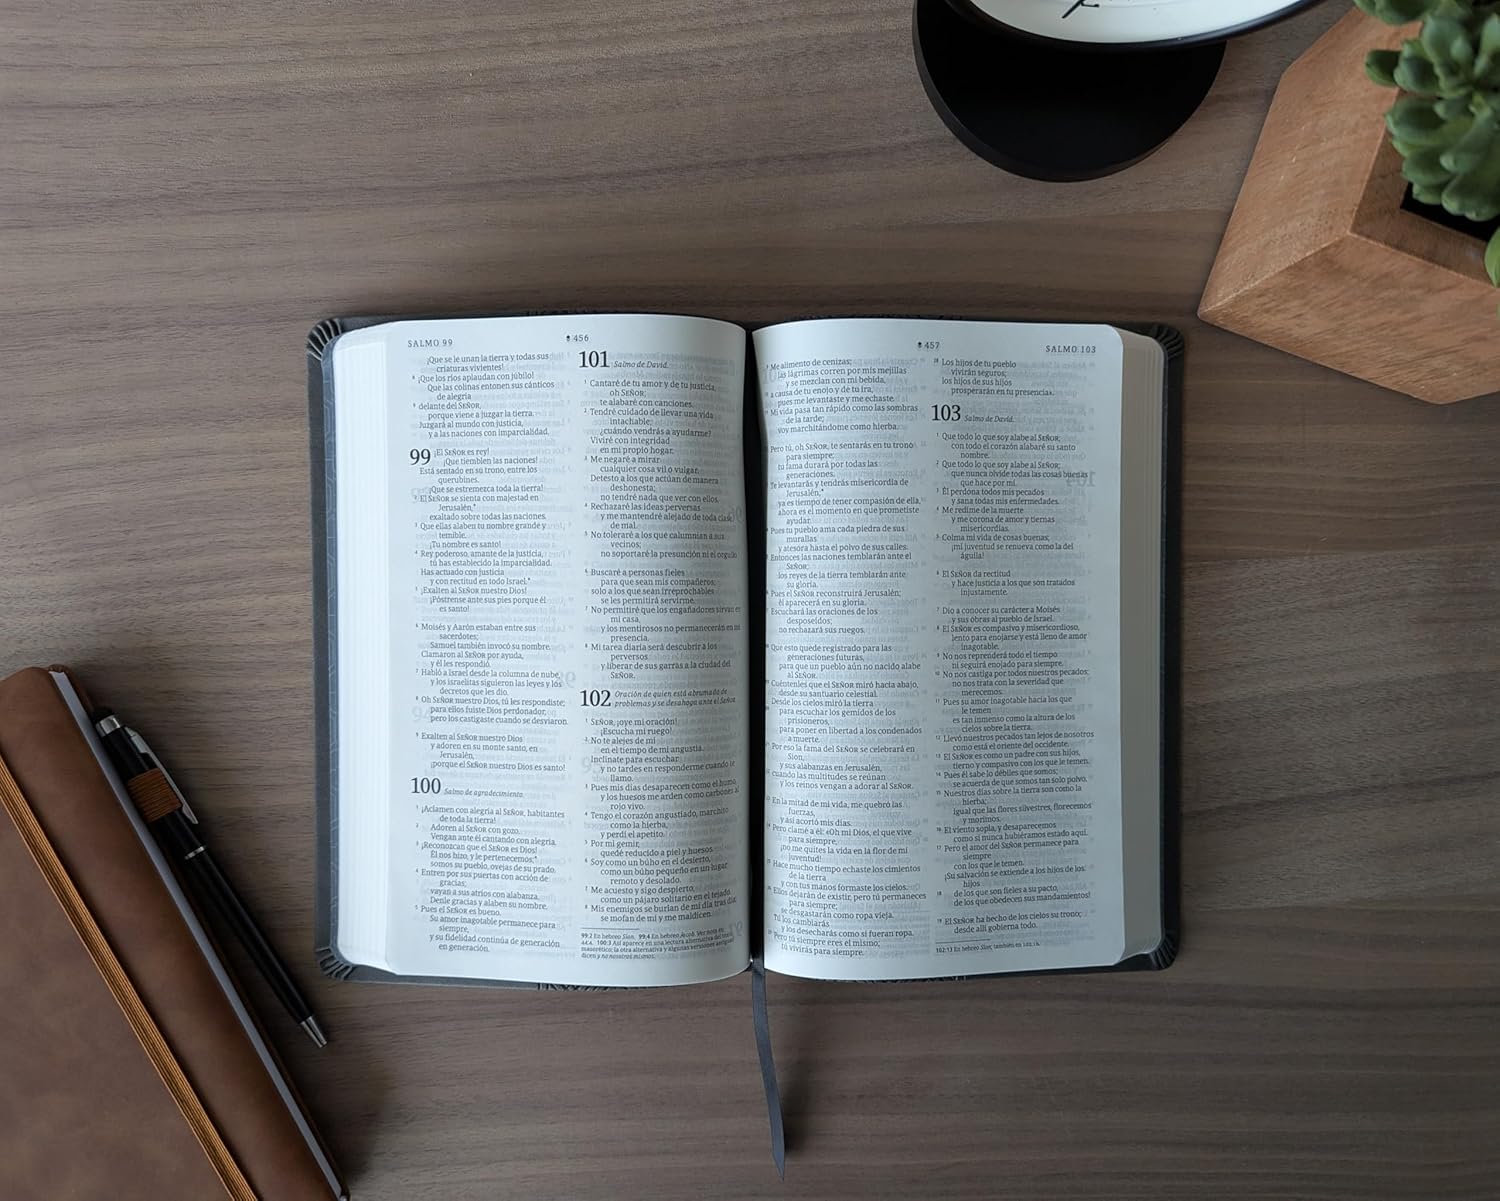 SALMO 99
456
¡Que se le unan la tierra y todas sus
criaturas vivientes!
8 ¡Que los ríos aplaudan con júbilo!
Que las colinas entonen sus cánticos
de alegría
9 delante del SEÑOR,
porque viene a juzgar la tierra.
Juzgará al mundo con justicia,
y a las naciones con imparcialidad.
99 ¡El SEÑOR es rey!
¡Que tiemblen las naciones!
Está sentado en su trono, entre los
querubines.
¡Que se estremezca toda la tierra!
2 El SEÑOR se sienta con majestad en
Jerusalén,*
exaltado sobre todas las naciones.
3 Que ellas alaben tu nombre grande y
temible.
¡Tu nombre es santo!
4 Rey poderoso, amante de la justicia,
tú has establecido la imparcialidad.
Has actuado con justicia
y con rectitud en todo Israel.*
5 ¡Exalten al SEÑOR nuestro Dios!
¡Póstrense ante sus pies porque él
es santo!
6 Moisés y Aarón estaban entre sus
sacerdotes;
Samuel también invocó su nombre.
Clamaron al SEÑOR por ayuda,
y él les respondió.
7 Habló a Israel desde la columna de nube,
y los israelitas siguieron las leyes y los
decretos que les dio.
8 Oh SEÑOR nuestro Dios, tú les respondiste;
para ellos fuiste Dios perdonador,
pero los castigaste cuando se desviaron.
9 Exalten al SEÑOR nuestro Dios
y adoren en su monte santo, en
Jerusalén,
¡porque el SEÑOR nuestro Dios es santo!
100 Salmo de agradecimiento.
1 ¡Aclamen con alegría al SEÑOR, habitantes
de toda la tierra!
2 Adoren al SEÑOR con gozo.
Vengan ante él cantando con alegría.
3 ¡Reconozcan que el SEÑOR es Dios!
Él nos hizo, y le pertenecemos;*
somos su pueblo, ovejas de su prado.
4 Entren por sus puertas con acción de
gracias;
vayan a sus atrios con alabanza.
Denle gracias y alaben su nombre.
5 Pues el SEÑOR es bueno.
Su amor inagotable permanece para
siempre,
y su fidelidad continúa de generación
en generación.
101 Salmo de David.
1 Cantaré de tu amor y de tu justicia,
oh SEÑOR;
te alabaré con canciones.
2 Tendré cuidado de llevar una vida
intachable;
¿cuándo vendrás a ayudarme?
Viviré con integridad
en mi propio hogar.
3 Me negaré a mirar
cualquier cosa vil o vulgar.
Detesto a los que actúan de manera
deshonesta;
no tendré nada que ver con ellos.
4 Rechazaré las ideas perversas
y me mantendré alejado de toda clase
de mal.
5 No toleraré a los que calumnian a sus
vecinos;
no soportaré la presunción ni el orgullo
6 Buscaré a personas fieles
para que sean mis compañeros;
solo a los que sean irreprochables
se les permitirá servirme.
7 No permitiré que los engañadores sirvan en
mi casa,
y los mentirosos no permanecerán en mi
presencia.
8 Mi tarea diaria será descubrir a los
perversos
y liberar de sus garras a la ciudad del
SEÑOR.
102 Oración de quien está abrumado de
problemas y se desahoga ante el SEÑOR.
1 SEÑOR, ¡oye mi oración!
¡Escucha mi ruego!
2 No te alejes de mí
en el tiempo de mi angustia.
Inclínate para escuchar
y no tardes en responderme cuando te
llamo.
3 Pues mis días desaparecen como el humo,
y los huesos me arden como carbones al
rojo vivo.
4 Tengo el corazón angustiado, marchito
como la hierba,
y perdí el apetito.
5 Por mi gemir,
quedé reducido a piel y huesos.
6 Soy como un búho en el desierto,
como un búho pequeño en un lugar
remoto y desolado.
7 Me acuesto y sigo despierto,
como un pájaro solitario en el tejado.
8 Mis enemigos se burlan de mí día tras día;
se mofan de mí y me maldicen.
99:2 En hebreo Sion. 99:4 En hebreo Jacob. Ver nota en
44:4. 100:3 Así aparece en una lectura alternativa del texto
masorético; la otra alternativa y algunas versiones antiguas
dicen y no nosotros mismos.
457
SALMO 103
Me alimento de cenizas;
las lágrimas corren por mis mejillas
y se mezclan con mi bebida,
a causa de tu enojo y de tu ira,
pues me levantaste y me echaste.
Mi vida pasa tan rápido como las sombras
de la tarde;
voy marchitándome como hierba.
Pero tú, oh SEÑOR, te sentarás en tu trono
para siempre;
tu fama durará por todas las
generaciones.
Te levantarás y tendrás misericordia de
Jerusalén,*
ya es tiempo de tener compasión de ella,
ahora es el momento en que prometiste
ayudar.
Pues tu pueblo ama cada piedra de sus
murallas
y atesora hasta el polvo de sus calles.
Entonces las naciones temblarán ante el
SEÑOR;
los reyes de la tierra temblarán ante
su gloria.
Pues el SEÑOR reconstruirá Jerusalén;
él aparecerá en su gloria.
Escuchará las oraciones de los
desposeídos;
no rechazará sus ruegos.
Que esto quede registrado para las
generaciones futuras,
para que un pueblo aún no nacido alabe
al SEÑOR.
Cuéntenles que el SEÑOR miró hacia abajo,
desde su santuario celestial.
Desde los cielos miró la tierra
para escuchar los gemidos de los
prisioneros,
para poner en libertad a los condenados
a muerte.
Por eso la fama del SEÑOR se celebrará en
Sion,
y sus alabanzas en Jerusalén,
cuando las multitudes se reúnan
y los reinos vengan a adorar al SEÑOR.
En la mitad de mi vida, me quebró las
fuerzas,
y así acortó mis días.
Pero clamé a él: «Oh mi Dios, el que vive
para siempre,
¡no me quites la vida en la flor de mi
juventud!
Hace mucho tiempo echaste los cimientos
de la tierra
y con tus manos formaste los cielos.
Ellos dejarán de existir, pero tú permaneces
para siempre;
se desgastarán como ropa vieja.
Tú los cambiarás
y los desecharás como si fueran ropa.
Pero tú siempre eres el mismo;
tú vivirás para siempre.
28 Los hijos de tu pueblo
vivirán seguros;
los hijos de sus hijos
prosperarán en tu presencia».
103 Salmo de David.
1 Que todo lo que soy alabe al SEÑOR;
con todo el corazón alabaré su santo
nombre.
2 Que todo lo que soy alabe al SEÑOR;
que nunca olvide todas las cosas buenas
que hace por mí.
3 Él perdona todos mis pecados
y sana todas mis enfermedades.
4 Me redime de la muerte
y me corona de amor y tiernas
misericordias.
5 Colma mi vida de cosas buenas;
¡mi juventud se renueva como la del
águila!
6 El SEÑOR da rectitud
y hace justicia a los que son tratados
injustamente.
7 Dio a conocer su carácter a Moisés
y sus obras al pueblo de Israel.
8 El SEÑOR es compasivo y misericordioso,
lento para enojarse y está lleno de amor
inagotable.
9 No nos reprenderá todo el tiempo
ni seguirá enojado para siempre.
10 No nos castiga por todos nuestros pecados;
no nos trata con la severidad que
merecemos.
11 Pues su amor inagotable hacia los que
le temen
es tan inmenso como la altura de los
cielos sobre la tierra.
12 Llevó nuestros pecados tan lejos de nosotros
como está el oriente del occidente.
13 El SEÑOR es como un padre con sus hijos,
tierno y compasivo con los que le temen.
14 Pues él sabe lo débiles que somos;
se acuerda de que somos tan solo polvo.
15 Nuestros días sobre la tierra son como la
hierba;
igual que las flores silvestres, florecemos
y morimos.
16 El viento sopla, y desaparecemos
como si nunca hubiéramos estado aquí.
17 Pero el amor del SEÑOR permanece para
siempre
con los que le temen.
¡Su salvación se extiende a los hijos de los
hijos
18 de los que son fieles a su pacto,
de los que obedecen sus mandamientos!
19 El SEÑOR ha hecho de los cielos su trono;
desde allí gobierna todo.
102:13 En hebreo Sion; también en 102:16.